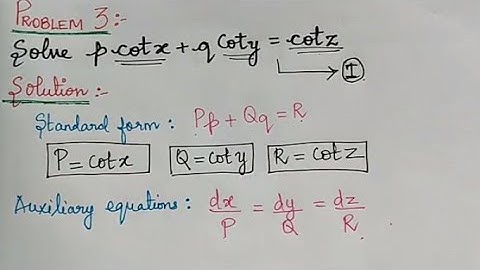 PROBLEM 3:-
Solve p cotx + q Coty = cotz
I
Solution :-
Standard form : Pp + Qq = R
P = cotx Q = coty R = cotz
Auxiliary equations : dx/P = dy/Q = dz/R